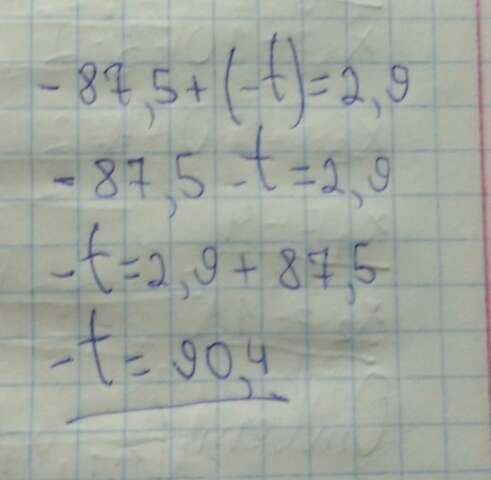 - 87,5 + (-t) = 2,9
- 87,5 - t = 2,9
- t = 2,9 + 87,5
- t = 90,4